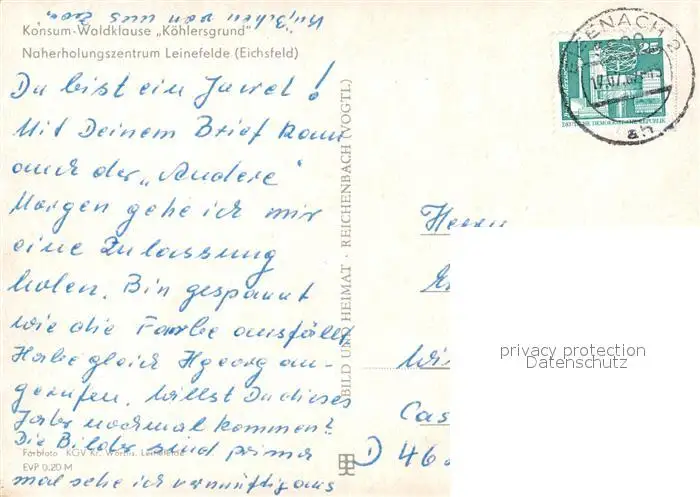 Küßchen von uns
Konsum-Waldklause „Köhlersgrund"
Naherholungszentrum Leinefelde (Eichsfeld)
Du bist ein Juwel!
Mit Deinem Brief kam
auch der „Andere"
Morgen gehe ich mir
eine Zulassung
holen. Bin gespannt
wie die Farbe ausfällt
Habe gleich Hgeorg an-
gerufen. Willst Du dieses
Jahr nochmal kommen?
Die Bilder sind prima
mal sehe ich vernünftig aus
Farbfoto KGV Kr. Worbis, Leinefelde
EVP 0,20 M
BILD UND HEIMAT · REICHENBACH (VOGTL)
EISENACH 2
ah
25
DEUTSCHE DEMOKRATISCHE REPUBLIK
Herrn
Cas
D 46
privacy protection
Datenschutz